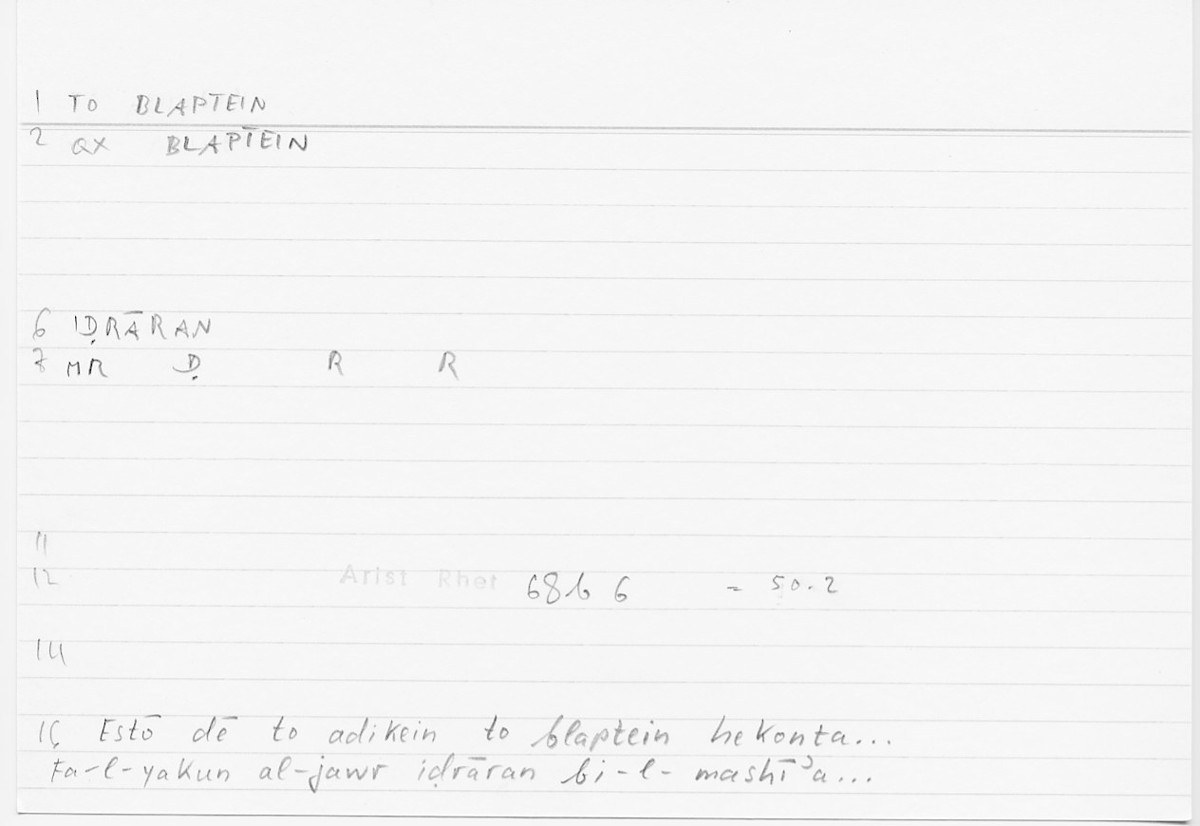 1 TO BLAPTEIN
2 QX BLAPTEIN
6 IḌRĀRAN
7 MR Ḍ R R
11
12 Arist Rhet 68b 6 = 50.2
14
15 Estō dē to adikein to blaptein hekonta...
Fa-l-yakun al-jawr iḍrāran bi-l-mashīʾa...